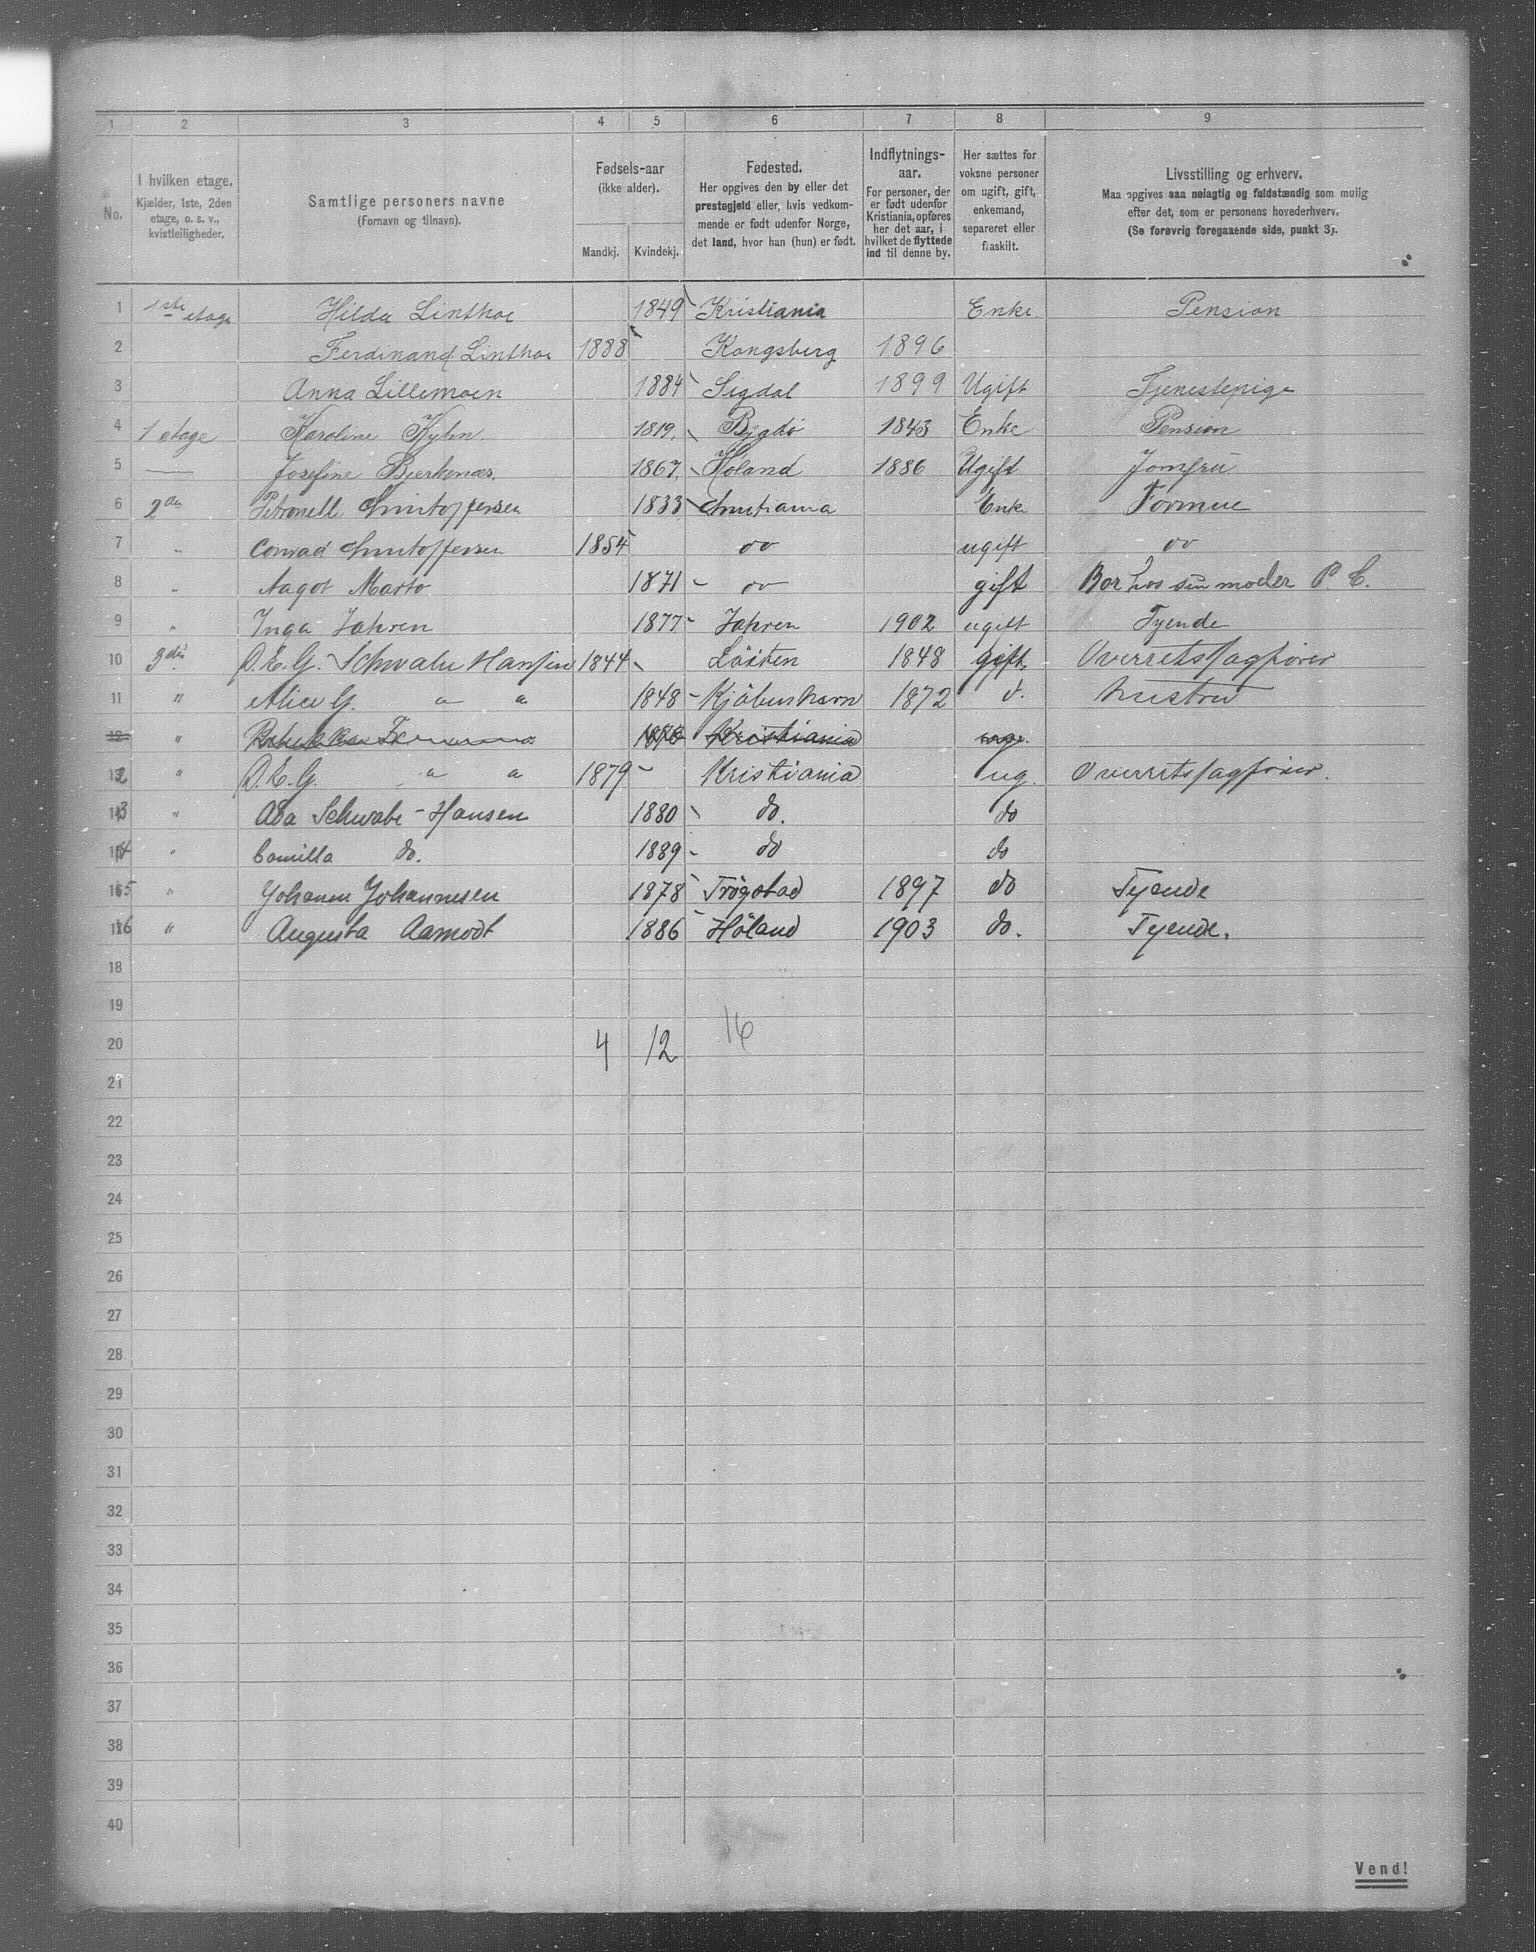 1 2 3 4 5 6 7 8 9
No.
I hvilken etage.
Kjælder, 1ste, 2den
etage, o. s. v.,
kvistleiligheder.
Samtlige personers navne
(Fornavn og tilnavn).
Fødsels-aar
(ikke alder).
Mandkj. Kvindekj.
Fødested.
Her opgives den by eller det
prestegjeld eller, hvis vedkom-
mende er født udenfor Norge,
det land, hvor han (hun) er født.
Indflytnings-
aar.
For personer, der
er født udenfor
Kristiania, opføres
her det aar, i
hvilket de flyttede
ind til denne by.
Her sættes for
voksne personer
om ugift, gift,
enkemand,
separeret eller
fraskilt.
Livsstilling og erhverv.
Maa opgives saa nøiagtig og fuldstændig som mulig
efter det, som er personens hovederhverv.
(Se forøvrig foregaaende side, punkt 3).
1 1ste etage Hilda Linthoe 1849 Kristiania Enke Pension
2 Ferdinand Linthoe 1888 Kongsberg 1896
3 Anna Lillemoen 1884 Sigdal 1899 Ugift Tjenestepige
4 1 etage Karoline Kyhn 1819 Bygdö 1843 Enke Pension
5 — Josefine Bjerkenæs 1867 Höland 1886 Ugift Jomfru
6 2den Petronell Christoffersen 1833 Christiania Enke Formue
7 " Conrad Christoffersen 1854 do ugift do
8 " Aagot Marto 1871 do gift Bor hos sin moder P. C.
9 " Inga Jahren 1877 Jahren 1902 ugift Tyende
10 3die O. E. G. Schwabe Hansen 1844 Löiten 1848 gift Overretssagfører
11 " Alice G. " " 1848 Kjöbenhavn 1872 d. hustru
12 " Kristiania
12 " O. E. G. " " 1879 Kristiania ug. Overretssagfører.
13 " Ada Schwabe-Hansen 1880 do. do
14 " Camilla do. 1889 do do
15 " Johanne Johannesen 1878 Trögstad 1897 do Tyende
16 " Augusta Aamodt 1886 Höland 1903 do. Tyende.
18
19
20 4 12 16
21
22
23
24
25
26
27
28
29
30
31
32
33
34
35
36
37
38
39
40
Vend!